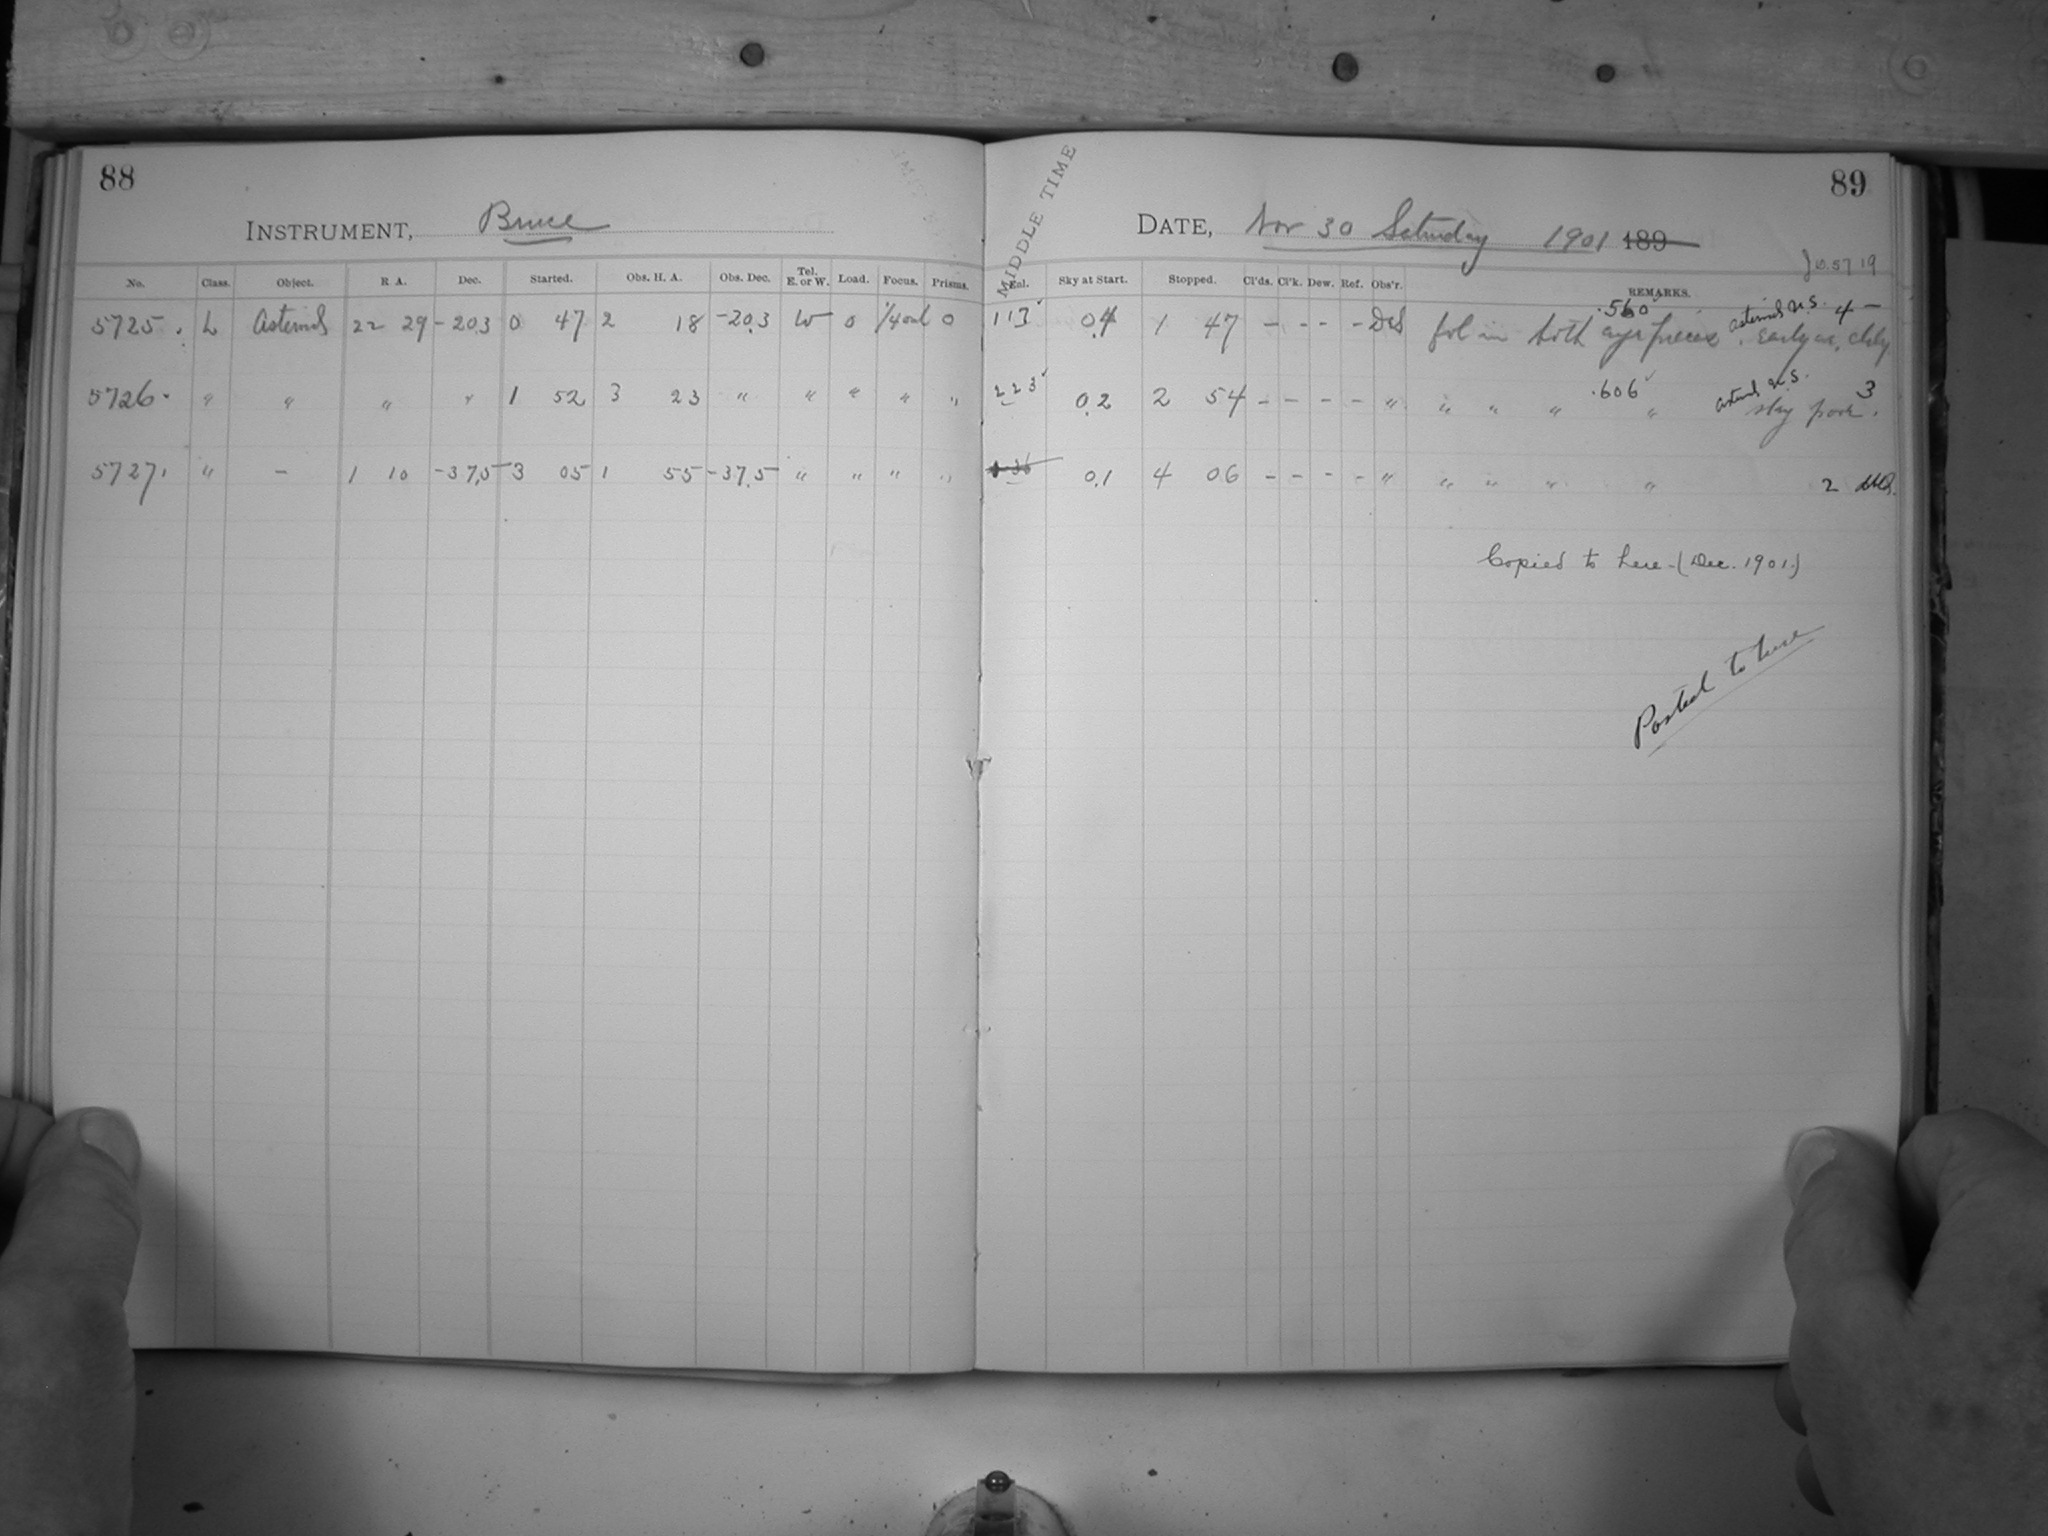 88
89
INSTRUMENT, Bruce
MIDDLE TIME
DATE, Nov 30 Saturday 1901 189
No. Class. Object. R A. Dec. Started. Obs. H. A. Obs. Dec. Tel. E. or W. Load. Focus. Prisms.
Enl. Sky at Start. Stopped. Cl'ds. Cl'k. Dew. Ref. Obs'r. REMARKS.
5725. L Asteroid 22 29 -20.3 0 47 2 18 -20.3 W 0 1/4 out 0
113 0.4 1 47 - - - - fol in both eyepieces .560 asteroid n.s. 4 -
5726. " " " " 1 52 3 23 " " " " "
223 0.2 2 54 - - - - " " " " " .606 asteroid n.s. sky poor. 3
5727. " - 1 10 -37.5 3 05 1 55 -37.5 " " " "
0.1 4 06 - - - - " " " " " 2
Copied to here - (Dec. 1901.)
Posted to here